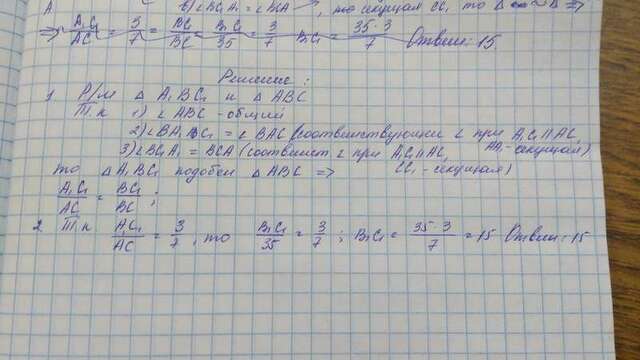 A
б) ∠BC₁A₁ = ∠BCA , то секущая CC₁, то Δ ∾ Δ ⇒
⇒ A₁C₁/AC = 3/7 = BC₁/BC = B₁C₁/35 = 3/7 B₁C₁ = 35·3/7 Ответ: 15.
Решение:
1 Р/м Δ A₁BC₁ и Δ ABC
Т.к 1) ∠ ABC - общий
2) ∠BA₁C₁ = ∠ BAC (соответствующие ∠ при A₁C₁ || AC,
AA₁ - секущая)
3) ∠BC₁A₁ = BCA (соответст. ∠ при A₁C₁ || AC,
CC₁ - секущая)
то Δ A₁BC₁ подобен Δ ABC =>
A₁C₁/AC = BC₁/BC ;
2. Т.к A₁C₁/AC = 3/7 , то B₁C₁/35 = 3/7 ; B₁C₁ = 35·3/7 = 15 Ответ: 15